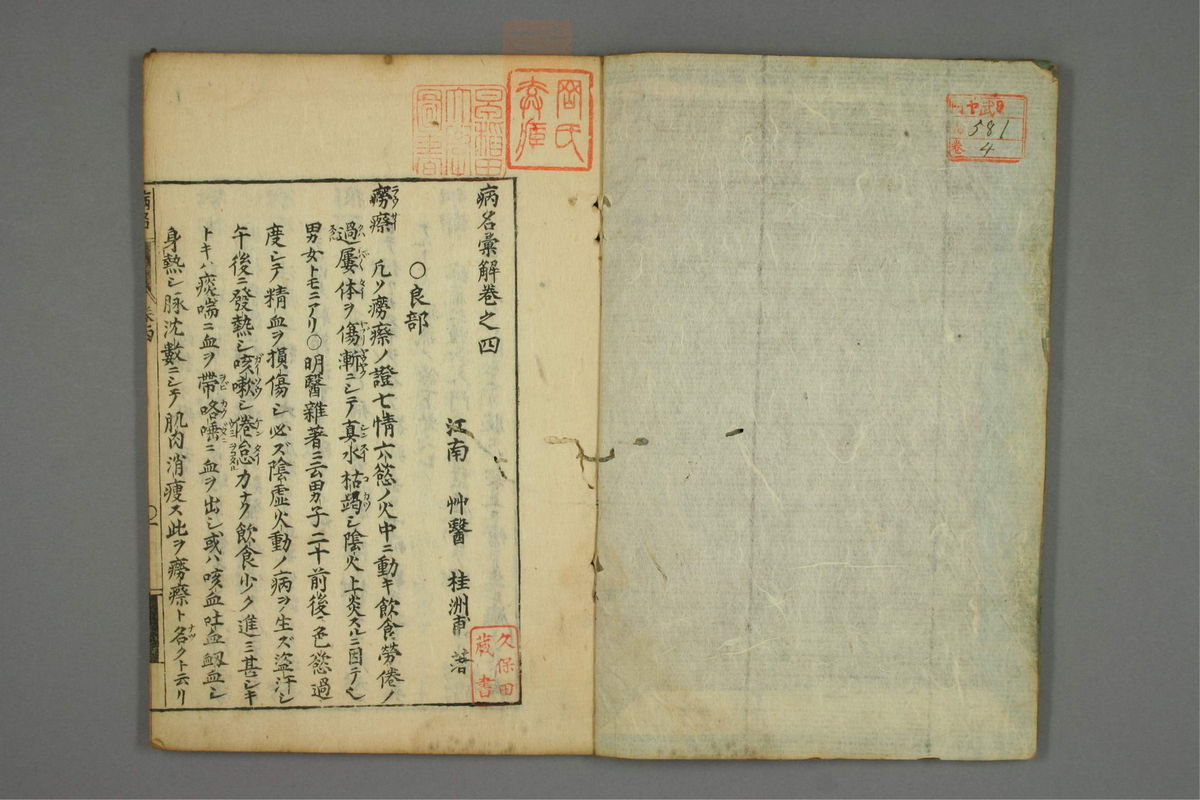 581
4
病名彙解巻之四
江南 艸醫 桂洲甫 著
久保田
蔵書
〇良部
癆瘵 凡ソ癆瘵ノ證七情六慾ノ火中ニ動キ飲食勞倦ノ
過屢体ヲ傷漸ニシテ真水枯竭シ陰火上炎スルニ因テ也
男女トモニアリ〇明醫雜著ニ云男子二十前後色慾過
度シテ精血ヲ損傷シ必ズ陰虚火動ノ病ヲ生ズ盗汗シ
午後ニ發熱シ咳嗽シ倦怠力ナク飲食少ク進ミ甚シキ
トキハ痰喘ニ血ヲ帶咯唾ニ血ヲ出シ或ハ咳血吐血衂血シ
身熱シ脉沈數ニシテ肌肉消痩ス此ヲ癆瘵ト名クト云リ